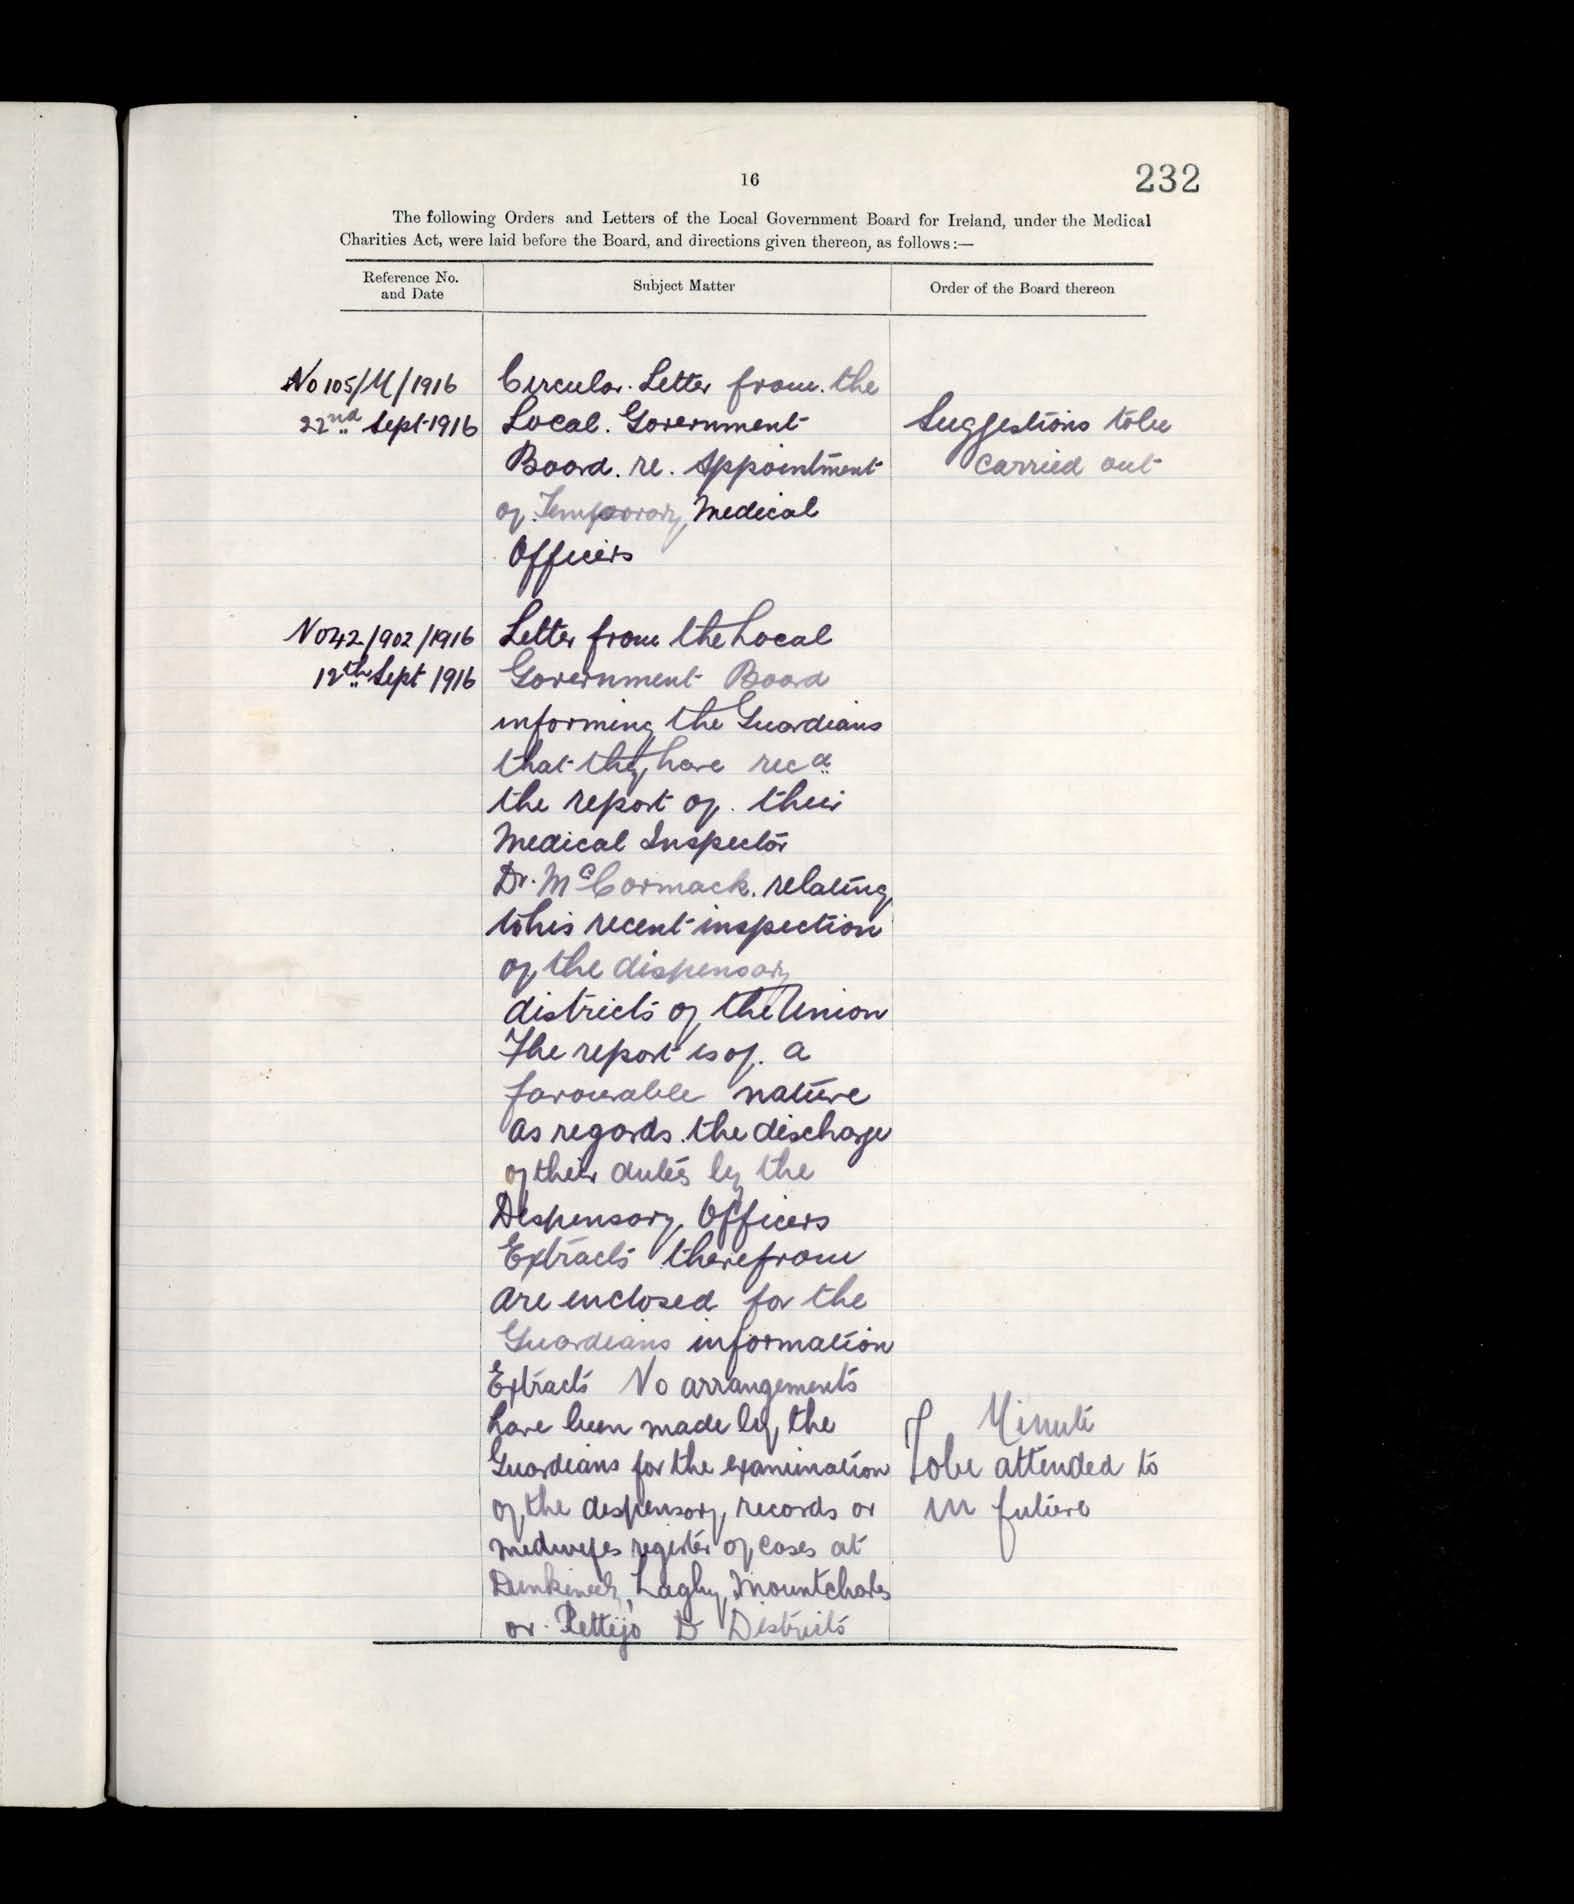 16
232
The following Orders and Letters of the Local Government Board for Ireland, under the Medical
Charities Act, were laid before the Board, and directions given thereon, as follows:—
Reference No.
and Date
Subject Matter
Order of the Board thereon
No 105/M/1916
22nd Sept 1916
Circular Letter from the
Local Government
Board. re. Appointment
of Temporary Medical
Officers
Suggestions to be
carried out
No 42/902/1916
12th Sept 1916
Letter from the Local
Government Board
informing the Guardians
that they have recd
the report of their
Medical Inspector
Dr. McCormack. relating
to his recent inspection
of the dispensary
districts of the Union
The report is of a
favourable nature
as regards the discharge
of their duties by the
Dispensary Officers
Extracts therefrom
are enclosed for the
Guardians information
Extracts No arrangements
have been made by the
Guardians for the examination
of the dispensary records or
midwifes register of cases at
Dunkineely, Laghy, Mountcharles
or Pettigo D Districts
Minute
To be attended to
in future